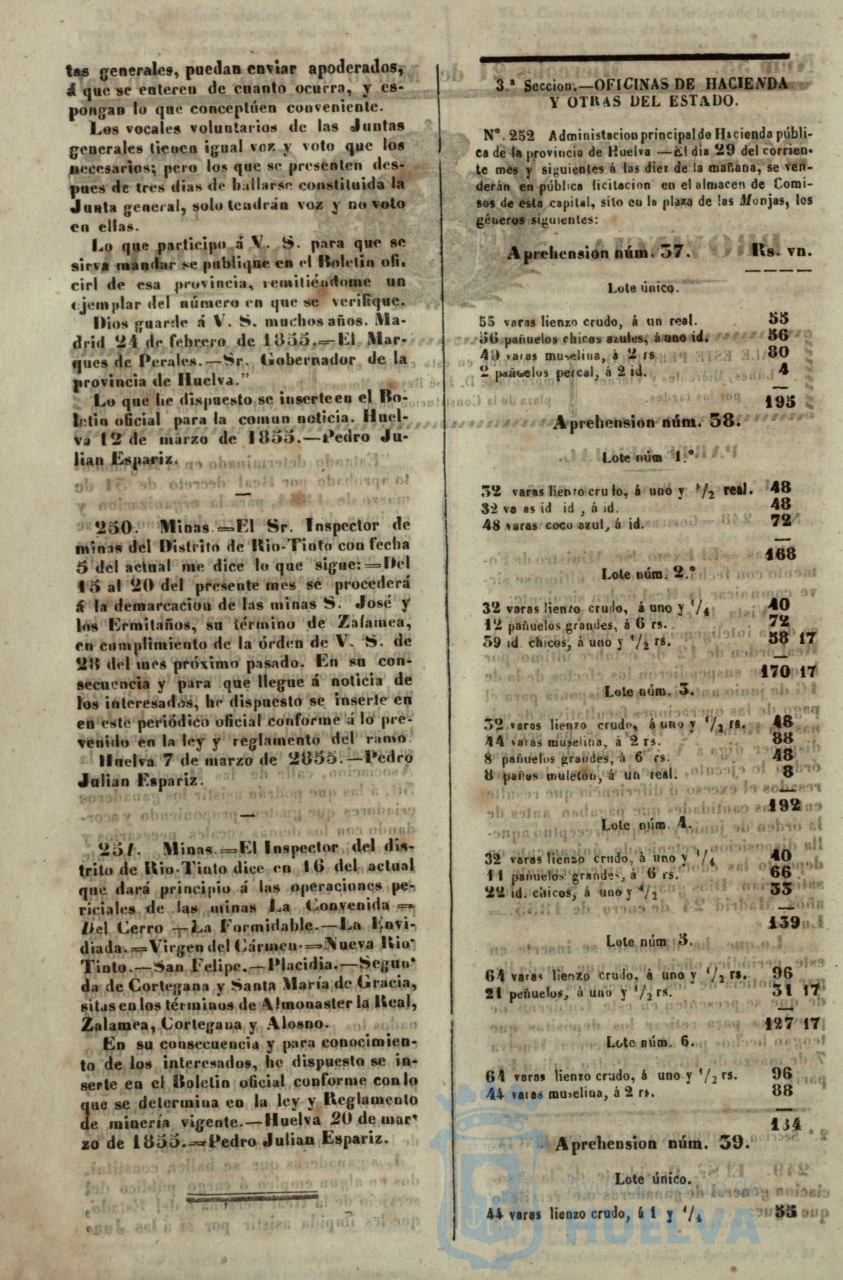 tas generales, puedan enviar apoderados,
á que se enteren de cuanto ocurra, y es-
pongan lo que conceptúen conveniente.
Los vocales voluntarios de las Juntas
generales tienen igual voz y voto que los
necesarios; pero los que se presenten des-
pues de tres dias de hallarse constituida la
Junta general, solo tendrán voz y no voto
en ellas.
Lo que participo á V. S. para que se
sirva mandar se publique en el Boletin ofi.
cirl de esa provincia, remitiéndome un
ejemplar del número en que se verifique.
Dios guarde á V. S. muchos años. Ma-
drid 24 de febrero de 1855.=El Mar-
ques de Perales.—Sr. Gobernador de la
provincia de Huelva.”
Lo que he dispuesto se inserteen el Bo-
letin oficial para la comun noticia. Huel-
va 12 de marzo de 1855.—Pedro Ju-
lian Espariz.
250. Minas.=El Sr. Inspector de
minas del Distrito de Rio-Tinto con fecha
5 del actual me dice lo que sigue:=Del
15 al 20 del presente mes se procederá
á la demarcacion de las minas S. José y
los Ermitaños, su término de Zalamea,
en cumplimiento de la órden de V. S. de
28 del mes próximo pasado. En su con-
secuencia y para que llegue á noticia de
los interesados, he dispuesto se inserte en
en este periódico oficial conforme á lo pre-
venido en la ley y reglamento del ramo
Huelva 7 de marzo de 2855.—Pedro
Julian Espariz.
251. Minas.=El Inspector del dis-
trito de Rio-Tinto dice en 16 del actual
que dará principio á las operaciones pe-
riciales de las minas La Convenida=
Del Cerro—La Formidable.—La Envi-
diada.=Virgen del Cármen.=Nueva Rio
Tinto.—San Felipe.—Placidia.—Segun
da de Cortegana y Santa María de Gracia,
sitas en los términos de Almonaster la Real,
Zalamea, Cortegana y Alosno.
En su consecuencia y para conocimien-
to de los interesados, he dispuesto se in-
serte en el Boletin oficial conforme con lo
que se determina en la ley y Reglamento
de minería vigente.—Huelva 20 de mar
zo de 1855.=Pedro Julian Espariz.
3.ª Seccion.—OFICINAS DE HACIENDA
Y OTRAS DEL ESTADO.
Nº. 252 Administacion principal de Hacienda públi-
ca de la provincia de Huelva —El dia 29 del corrien-
te mes y siguientes á las diez de la mañana, se ven-
derán en pública licitacion en el almacen de Comi-
sos de esta capital, sito en la plaza de las Monjas, los
géneros siguientes:
Aprehension núm. 37. Rs. vn.
Lote único.
55 varas lienzo crudo, á un real. 55
56 pañuelos chicos azules, á uno id. 56
40 varas muselina, á 2 rs 80
2 pañuelos percal, á 2 id. 4
195
Aprehension núm. 38.
Lote núm 1.º
32 varas lienzo crudo, á uno y 1/2 real. 48
32 va as id id , á id. 48
48 varas coco azul, á id. 72
168
Lote núm. 2.º
32 varas lienzo crudo, á uno y 1/4 40
12 pañuelos grandes, á 6 rs. 72
39 id. chicos, á uno y 1/2 rs. 58 17
170 17
Lote núm. 3.
32 varas lienzo crudo, á uno y 1/2 rs. 48
44 varas muselina, á 2 rs. 88
8 pañuelos grandes, á 6 rs. 48
8 paños muleton, á un real. 8
192
Lote núm. 4.
32 varas lienzo crudo, á uno y 1/4 40
11 pañuelos grandes, á 6 rs. 66
22 id. chicos, á uno y 1/2 33
139
Lote núm 5.
64 varas lienzo crudo, á uno y 1/2 rs. 96
21 peñuelos, á uno y 1/2 rs. 31 17
127 17
Lote núm. 6.
64 varas lienzo crudo, á uno y 1/2 rs. 96
44 varas muselina, á 2 rs. 88
184
Aprehension núm. 39.
Lote único.
44 varas lienzo crudo, á 1 y 1/4 55
HUELVA